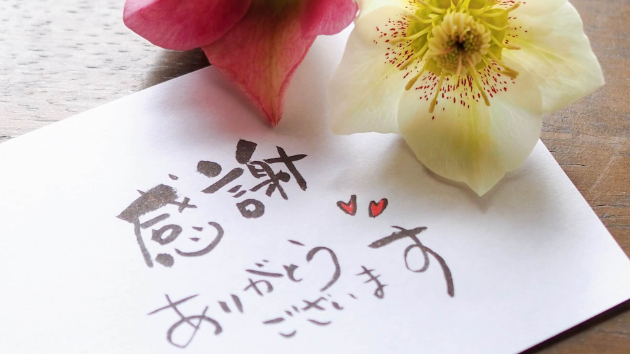 感謝
ありがとうございます